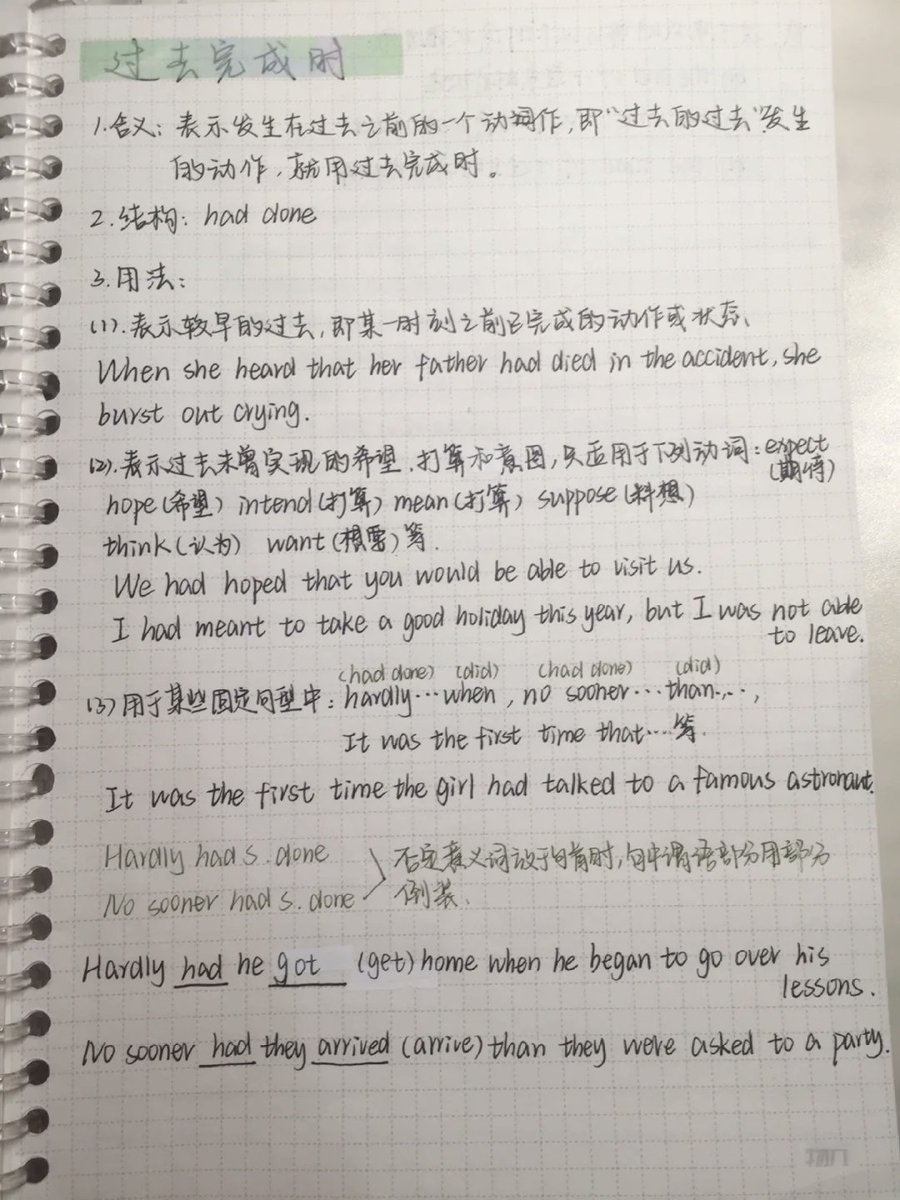 过去完成时
1.含义：表示发生在过去之前的一个动作,即“过去的过去”发生
的动作,就用过去完成时。
2.结构：had done
3.用法：
(1).表示较早的过去,即某一时刻之前已完成的动作或状态、
When she heard that her father had died in the accident, she
burst out crying.
(2).表示过去未曾实现的希望、打算和意图,只应用于下列动词：expect
(期待)
hope(希望) intend(打算) mean(打算) suppose(料想)
think(认为) want(想要)等.
We had hoped that you would be able to visit us.
I had meant to take a good holiday this year, but I was not able
to leave.
(had done) (did) (had done) (did)
(3)用于某些固定句型中：hardly…when, no sooner…than…,
It was the first time that…等.
It was the first time the girl had talked to a famous astronaut.
Hardly had s. done
No sooner had s. done
否定意义词放于句首时,句中谓语部分用部分
倒装、
Hardly had he got (get) home when he began to go over his
lessons.
No sooner had they arrived (arrive) than they were asked to a party.